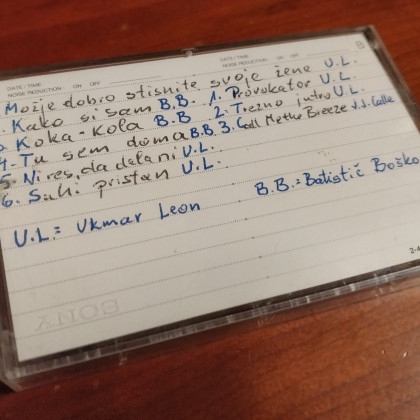 DATE / TIME
NOISE REDUCTION ON OFF
DATE / TIME
NOISE REDUCTION ON OFF
B
Možje dobro stisnite svoje žene U.L.
Kako si sam B.B. 1. Provokator U.L.
Koka-Kola B.B 2. Trezno jutro U.L.
4. Tu sem doma B.B. 3. Call Methe Breeze J.J. Calle
5. Ni res, da dela ni U.L.
6. Suhi pristan U.L.
U.L.= Ukmar Leon B.B.= Batistič Boško
SONY